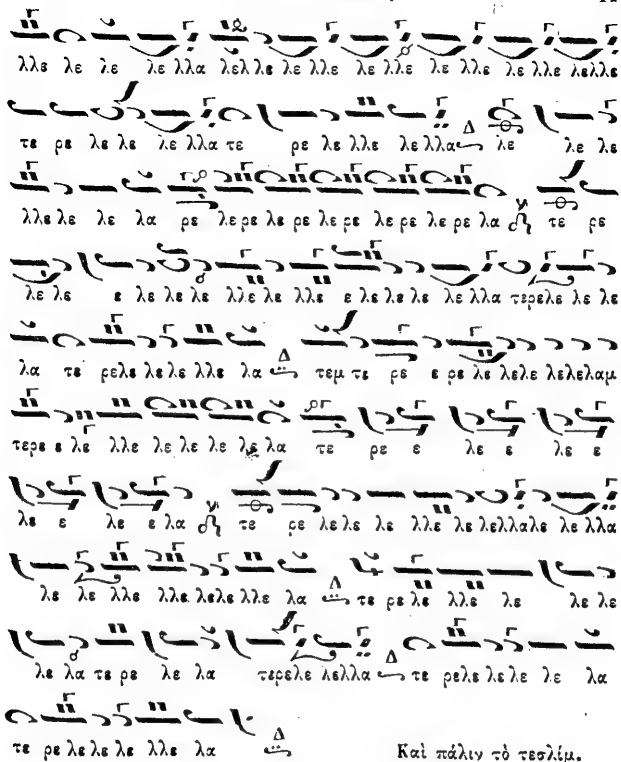 λλε λε λε λε λλα λελλε λε λλε λε λλε λε λλε λε λλε λελλε
τε ρε λε λε λε λλα τε ρε λε λλε λε λλα Δ λε λε λε
λλε λε λε λα ρε λερε λε ρε λε ρε λε ρε λε ρε λα τε ρε
λε λε ε λε λε λε λλε λε λλε ε λε λε λε λε λλα τερελε λε λε
λα τε ρελε λε λε λλε λα Δ τεμ τε ρε ε ρε λε λελε λελελαμ
τερε ε λε λλε λε λε λε λε λα τε ρε ε λε ε λε ε
λε ε λε ε λα τε ρε λε λε λε λλε λε λελλαλε λε λλα
λε λε λλε λλε λελε λλε λα Δ τε ρε λε λλε λε λε λε
λε λα τε ρε λε λα τερελε λελλα Δ τε ρελε λε λε λε λα
τε ρε λε λε λε λλε λα Δ Καὶ πάλιν τὸ τεσλίμ.